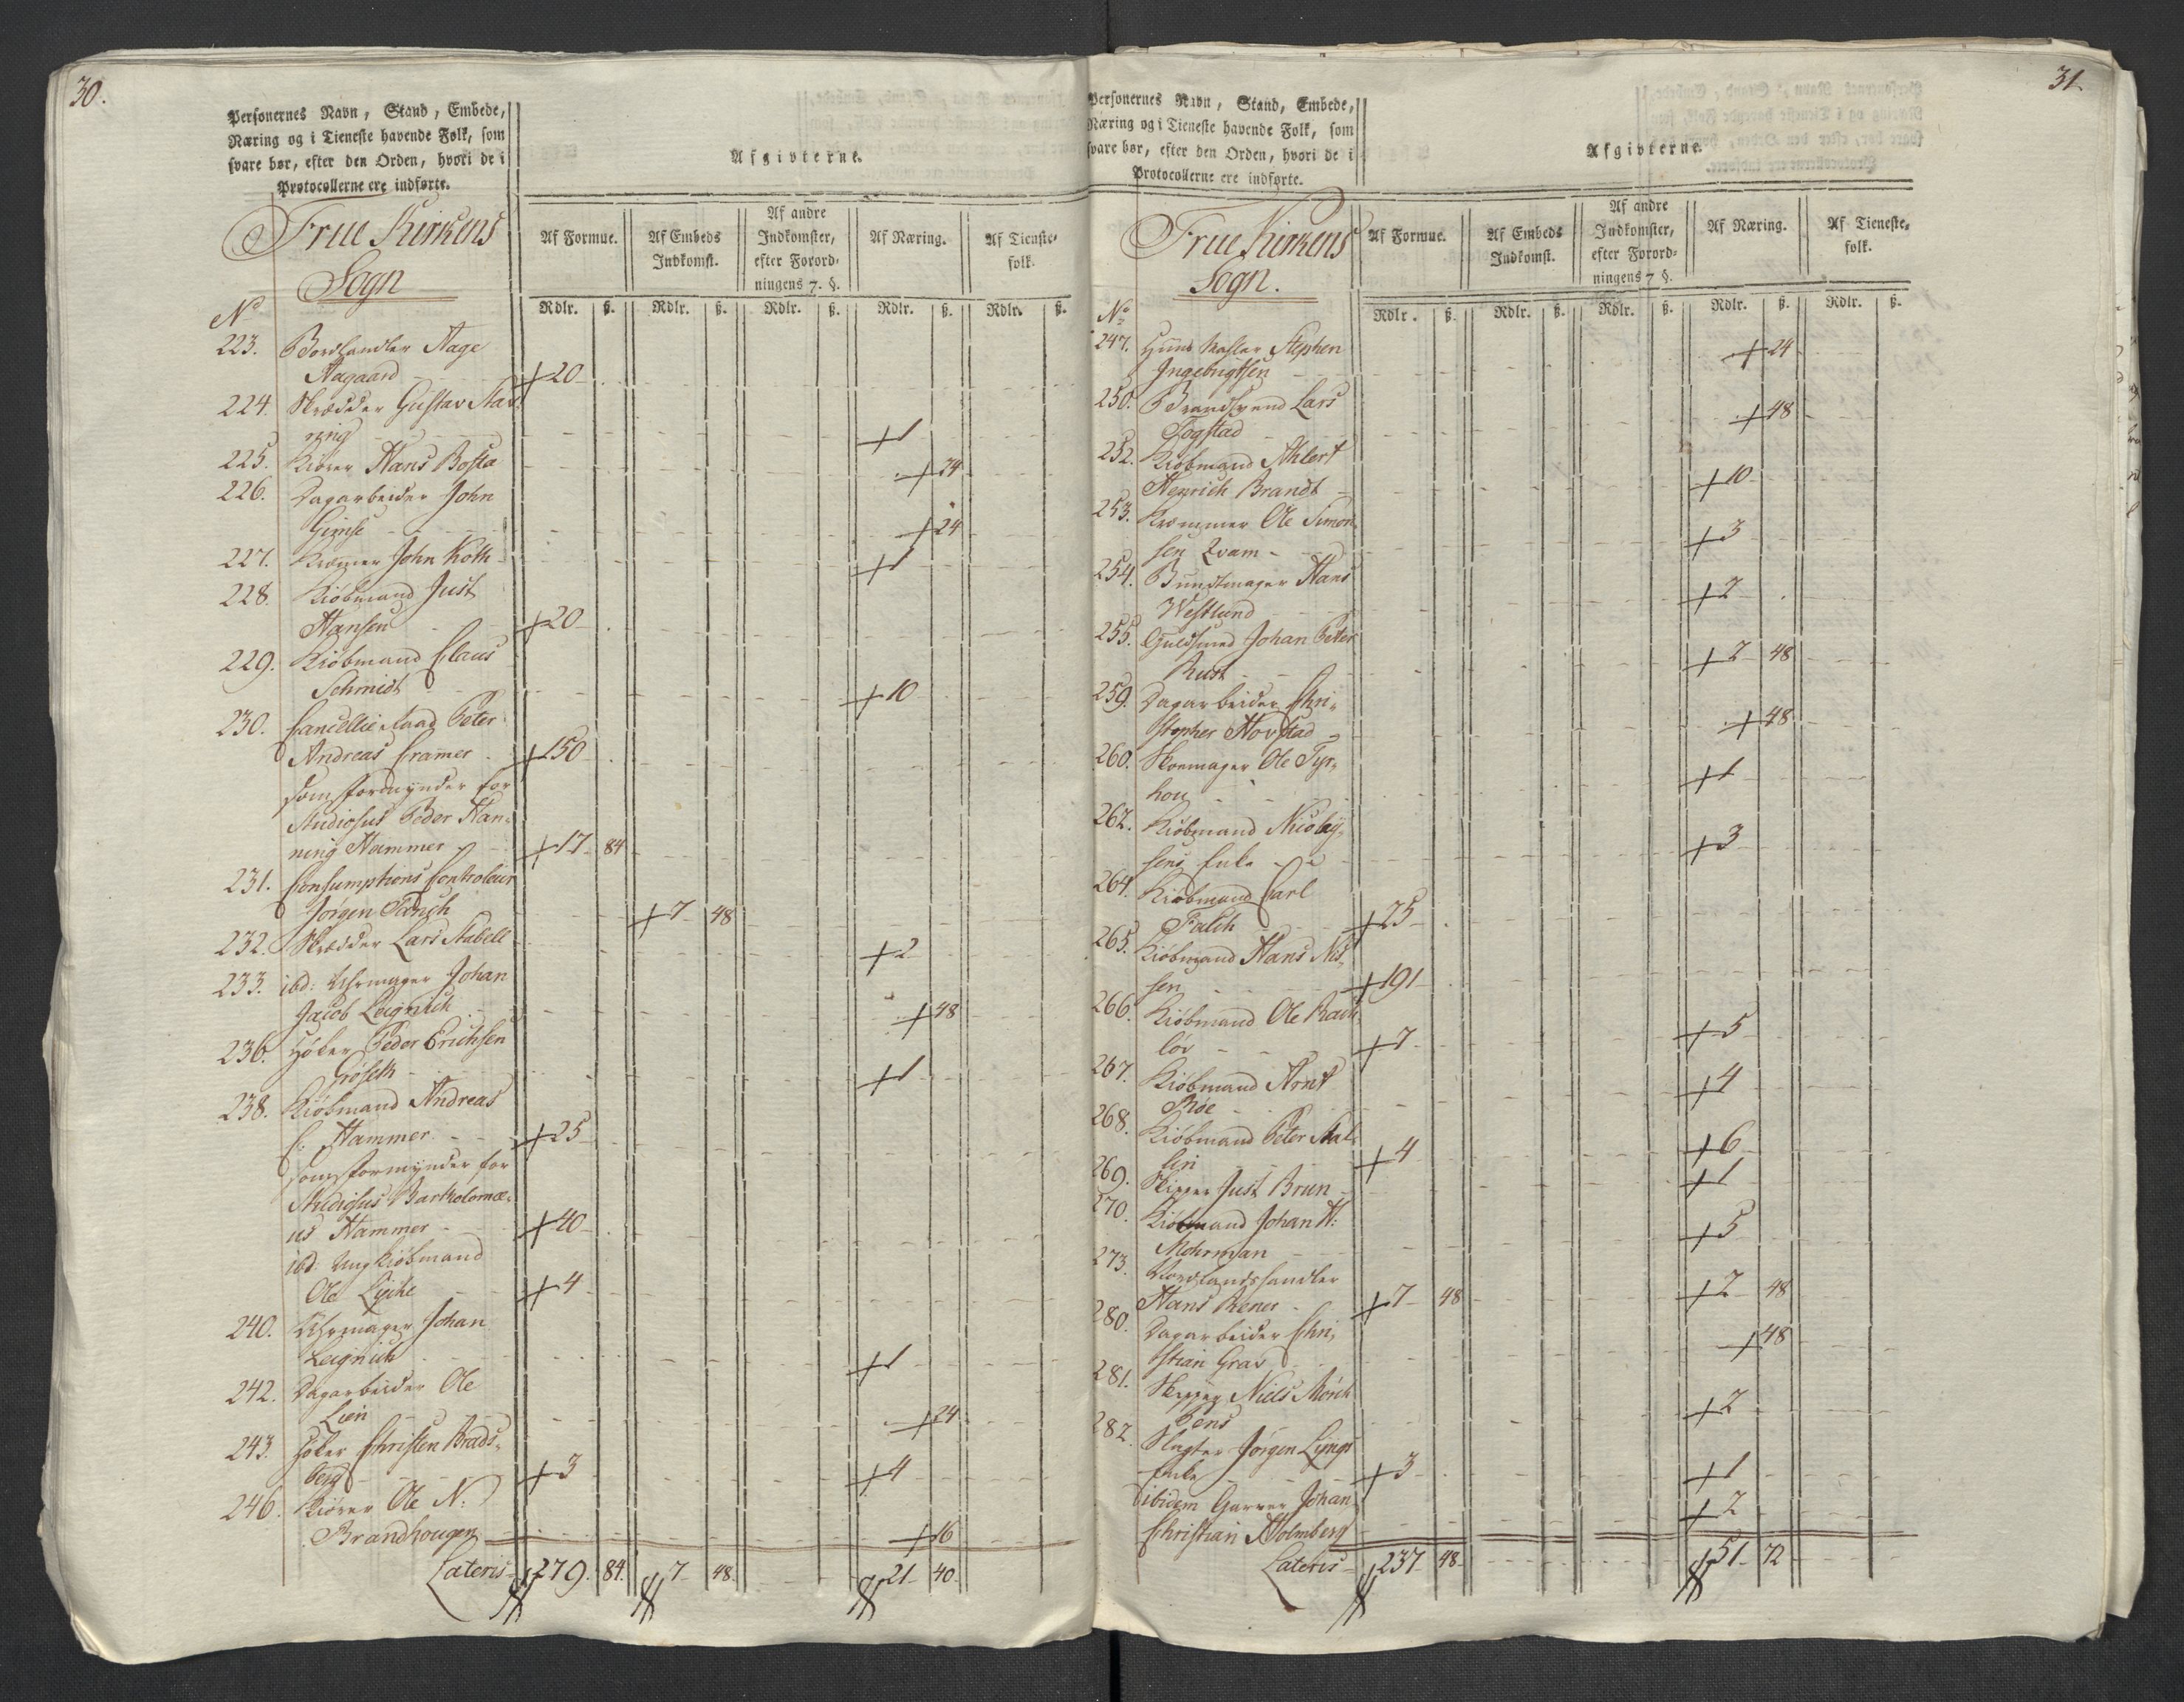 30.
Personernes Navn, Stand, Embede,
Næring og i Tieneste havende Folk, som
svare bør, efter den Orden, hvori de i
Protocollerne ere indførte.
Afgivterne.
Frue Kirkens
Sogn
Af Formue.
Af Embeds
Indkomst.
Af andre
Indkomster,
efter Forord-
ningens 7. §.
Af Næring.
Af Tieneste-
folk.
No
Rdlr. ß. Rdlr. ß. Rdlr. ß. Rdlr. ß. Rdlr. ß.
223. Bordhandler Aage
Aagaard - 20
224. Skrædder Gustav
ning 1
225. Kiører Hans Bosta 24
226. Dagarbeider John
Gimse - 24
227. Kræmer John Koth 1
228. Kiøbmand Just
Hansen - 20
229. Kiøbmand Claus
Schmidt - 10
230. Cancellieraad Peter
Andreas Cramer - 150
som Formynder for
Studiosus Peder Han-
ning Hammer - 17 84
231. Consumptions Controleur
Jørgen Parich 7 48
232. Skrædder Lars Stabell 2
233. ibd: Uhrmager Johan
Jacob Leignich 48
236. Høker Peder Erichsen
Grøseth - 1
238. Kiøbmand Andreas
C: Hammer - 25
som Formynder for
Studiosus Bartholomæ-
us Hammer - 40
ibd: Ung Kiøbmand
Ole Lycke 4
240. Uhrmager Johan
Leignich 1
242. Dagarbeider Ole
Lien 24
243. Høker Christen Brads-
berg 3 4
246. Kiører Ole N:
Brandhougen 16
Lateris 279. 84. 7 48. 21 40
31.
Personernes Navn, Stand, Embede,
Næring og i Tieneste havende Folk, som
svare bør, efter den Orden, hvori de i
Protocollerne ere indførte.
Afgivterne.
Frue Kirkens
Sogn.
Af Formue.
Af Embeds
Indkomst.
Af andre
Indkomster,
efter Forord-
ningens 7 §.
Af Næring.
Af Tieneste-
folk.
No
Rdlr. ß. Rdlr. ß. Rdlr. ß. Rdlr. ß. Rdlr. ß.
247. Stephen
Ingebrigtsen 24
250. Brandsvend Lars
Fogstad 48
252. Kiøbmand Ahlert
Henrich Brandt 10
253. Kræmmer Ole Simon-
sen Qvam - 3
254. Bundtmager Hans
Westlund 2
255. Guldsmed Johan Peter
Rust 2 48
259. Dagarbeider Chri-
stopher Hovstad 48
260. Skoemager Ole Tyr-
hou 1
262. Kiøbmand Nicolay-
sens Enke 3
264. Kiøbmand Carl
Falch 25
265. Kiøbmand Hans Nis-
sen 191
266. Kiøbmand Ole Rach-
løv 7 5
267. Kiøbmand Arnt
Røe 4
268. Kiøbmand Peter Stal-
len 4 6
269. Skipper Just Brun 1
270. Kiøbmand Johan H:
Mohrman 5
273. Nordlandshandler
Hans Rener 7 48 2 48
280. Dagarbeider Chri-
stian Grav 48
281. Skipper Niels Mørch
Jens 2
282. Slagter Jørgen Lyngs
Enke 3 1
ibidem Garver Johan
Christian Holmberg 2
Lateris 237 48 51 72